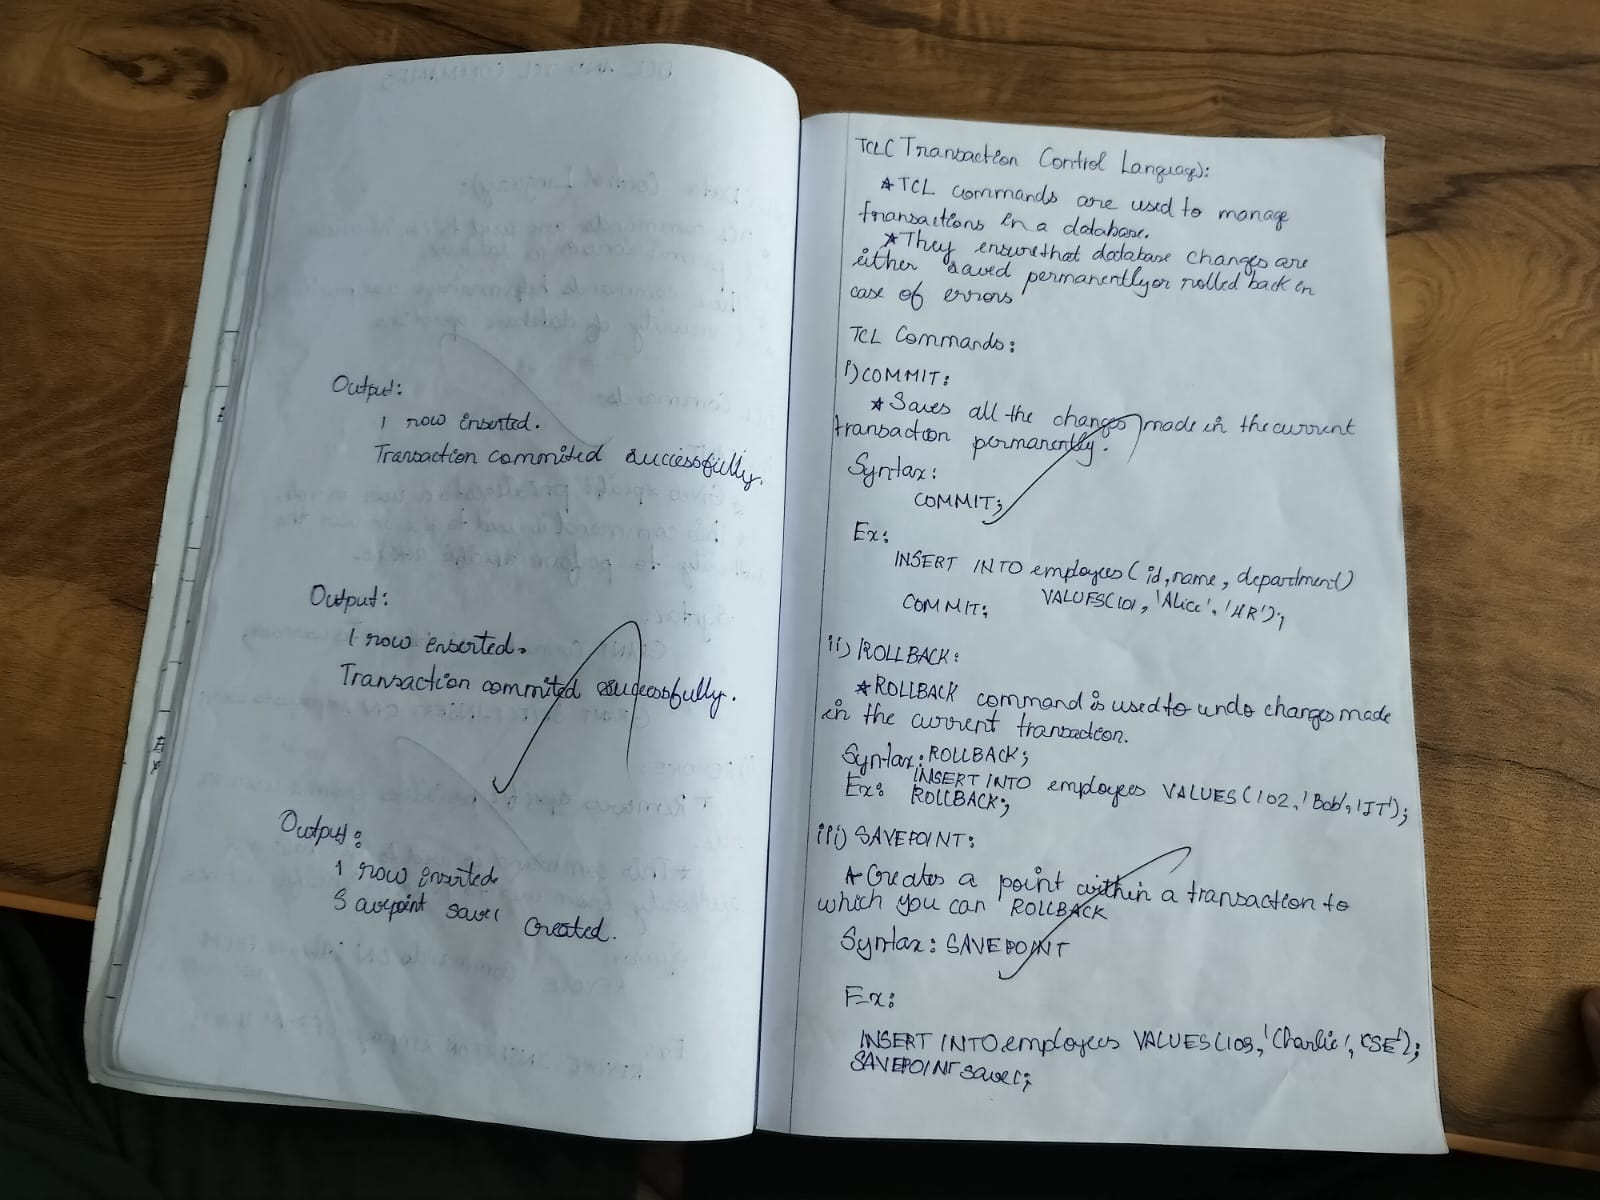 Output:
1 row inserted.
Transaction commited successfully.
Output:
1 row inserted.
Transaction commited successfully.
Output:
1 row inserted
Savepoint save1 created.
TCL(Transaction Control Language):
*TCL commands are used to manage
transactions in a database.
*They ensure that database changes are
either saved permanently or rolled back in
case of errors
TCL Commands:
i) COMMIT:
*Saves all the changes made in the current
transaction permanently.
Syntax:
COMMIT;
Ex:
INSERT INTO employees(id,name, department)
VALUES(101, 'Alice', 'HR');
COMMIT;
ii) ROLLBACK:
*ROLLBACK command is used to undo changes made
in the current transaction.
Syntax: ROLLBACK;
Ex: INSERT INTO employees VALUES(102, 'Bob', 'IT');
ROLLBACK;
iii) SAVEPOINT:
*Creates a point within a transaction to
which you can ROLLBACK
Syntax: SAVEPOINT
Ex:
INSERT INTO employees VALUES(103, 'Charlie', 'CSE');
SAVEPOINT save1;